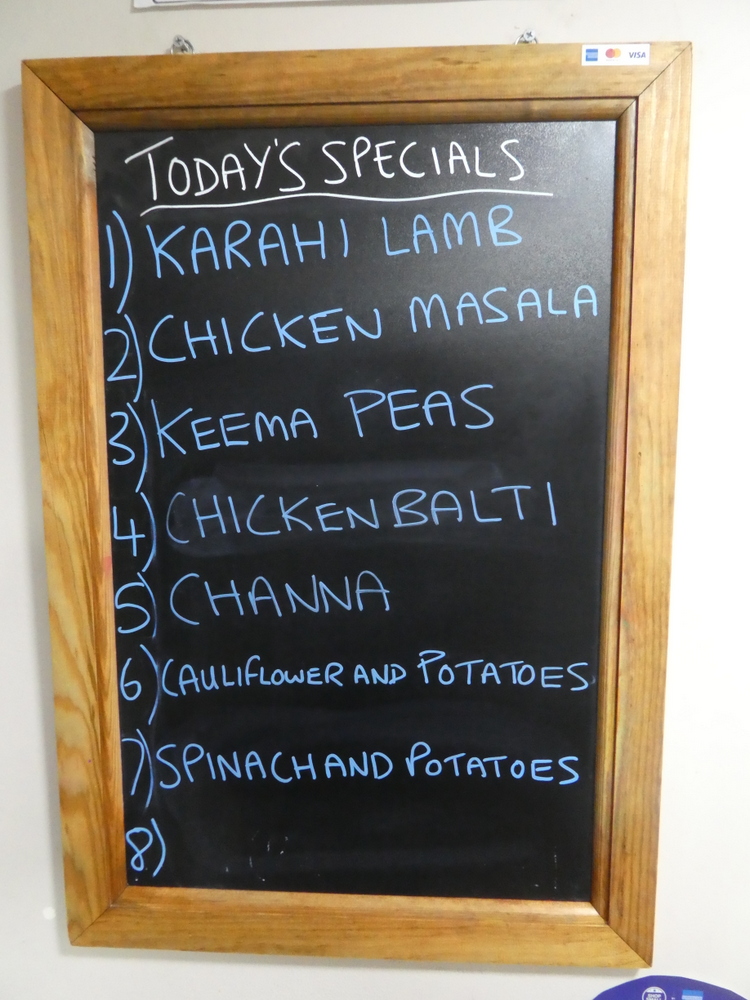 VISA
TODAY'S SPECIALS
1) KARAHI LAMB
2) CHICKEN MASALA
3) KEEMA PEAS
4) CHICKEN BALTI
5) CHANNA
6) CAULIFLOWER AND POTATOES
7) SPINACH AND POTATOES
8)